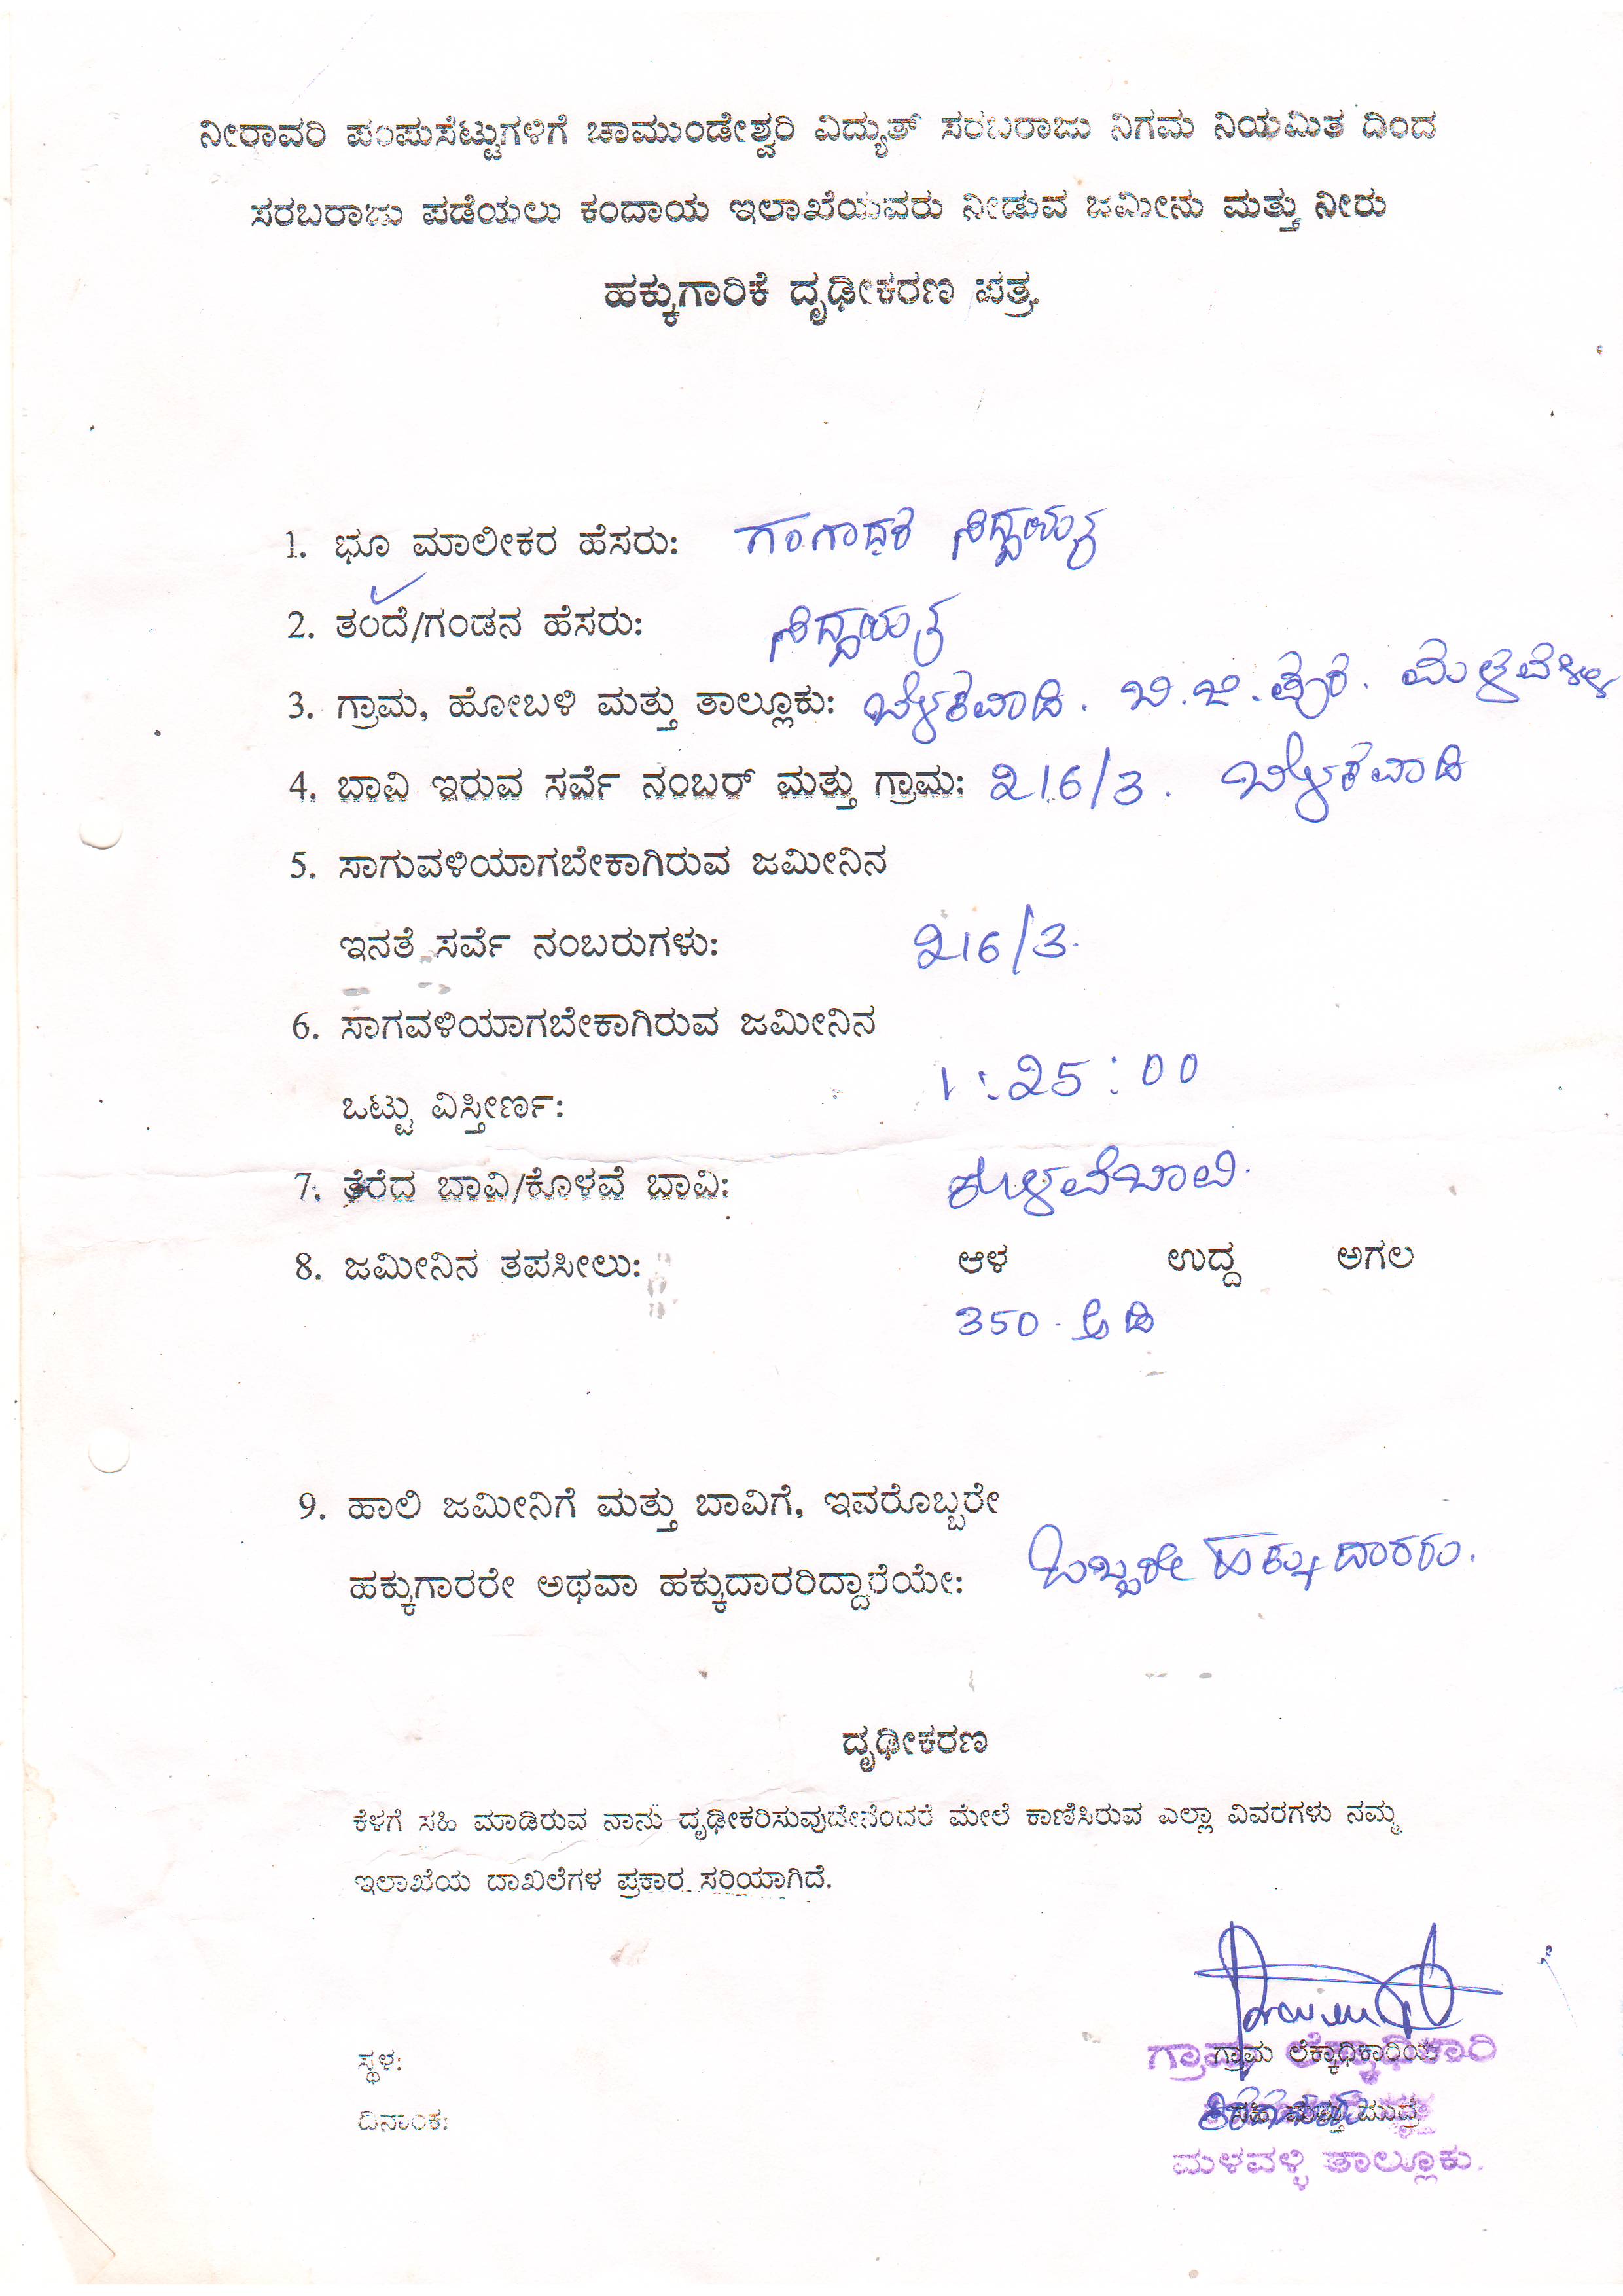 ನೀರಾವರಿ ಪಂಪುಸೆಟ್ಟುಗಳಿಗೆ ಚಾಮುಂಡೇಶ್ವರಿ ವಿದ್ಯುತ್ ಸರಬರಾಜು ನಿಗಮ ನಿಯಮಿತ ದಿಂದ
ಸರಬರಾಜು ಪಡೆಯಲು ಕಂದಾಯ ಇಲಾಖೆಯವರು ನೀಡುವ ಜಮೀನು ಮತ್ತು ನೀರು
ಹಕ್ಕುಗಾರಿಕೆ ದೃಢೀಕರಣ ಪತ್ರ
1. ಭೂ ಮಾಲೀಕರ ಹೆಸರು: ಗಂಗಾಧರ ಸಿದ್ದಯ್ಯ
2. ತಂದೆ/ಗಂಡನ ಹೆಸರು: ಸಿದ್ದಯ್ಯ
3. ಗ್ರಾಮ, ಹೋಬಳಿ ಮತ್ತು ತಾಲ್ಲೂಕು: ಬೆಳಕವಾಡಿ. ಬಿ.ಜಿ.ಪುರ. ಮಳವಳ್ಳಿ
4. ಬಾವಿ ಇರುವ ಸರ್ವೆ ನಂಬರ್ ಮತ್ತು ಗ್ರಾಮ: 216/3. ಬೆಳಕವಾಡಿ
5. ಸಾಗುವಳಿಯಾಗಬೇಕಾಗಿರುವ ಜಮೀನಿನ
ಇನತೆ ಸರ್ವೆ ನಂಬರುಗಳು: 216/3.
6. ಸಾಗವಳಿಯಾಗಬೇಕಾಗಿರುವ ಜಮೀನಿನ
ಒಟ್ಟು ವಿಸ್ತೀರ್ಣ: 1:25:00
7. ತೆರೆದ ಬಾವಿ/ಕೊಳವೆ ಬಾವಿ: ಕೊಳವೆಬಾವಿ.
8. ಜಮೀನಿನ ತಪಸೀಲು: ಆಳ ಉದ್ದ ಅಗಲ
350. ಅಡಿ
9. ಹಾಲಿ ಜಮೀನಿಗೆ ಮತ್ತು ಬಾವಿಗೆ, ಇವರೊಬ್ಬರೇ
ಹಕ್ಕುಗಾರರೇ ಅಥವಾ ಹಕ್ಕುದಾರರಿದ್ದಾರೆಯೇ: ಒಬ್ಬರೇ ಹಕ್ಕುದಾರರು.
ದೃಢೀಕರಣ
ಕೆಳಗೆ ಸಹಿ ಮಾಡಿರುವ ನಾನು ದೃಢೀಕರಿಸುವುದೇನೆಂದರೆ ಮೇಲೆ ಕಾಣಿಸಿರುವ ಎಲ್ಲಾ ವಿವರಗಳು ನಮ್ಮ
ಇಲಾಖೆಯ ದಾಖಲೆಗಳ ಪ್ರಕಾರ ಸರಿಯಾಗಿದೆ.
ಸ್ಥಳ:
ದಿನಾಂಕ:
ಗ್ರಾಮ ಲೆಕ್ಕಾಧಿಕಾರಿಯ
ಸಹಿ ಮತ್ತು ಮುದ್ರೆ
ಗ್ರಾಮ ಲೆಕ್ಕಾಧಿಕಾರಿ
ಮಳವಳ್ಳಿ ತಾಲ್ಲೂಕು.